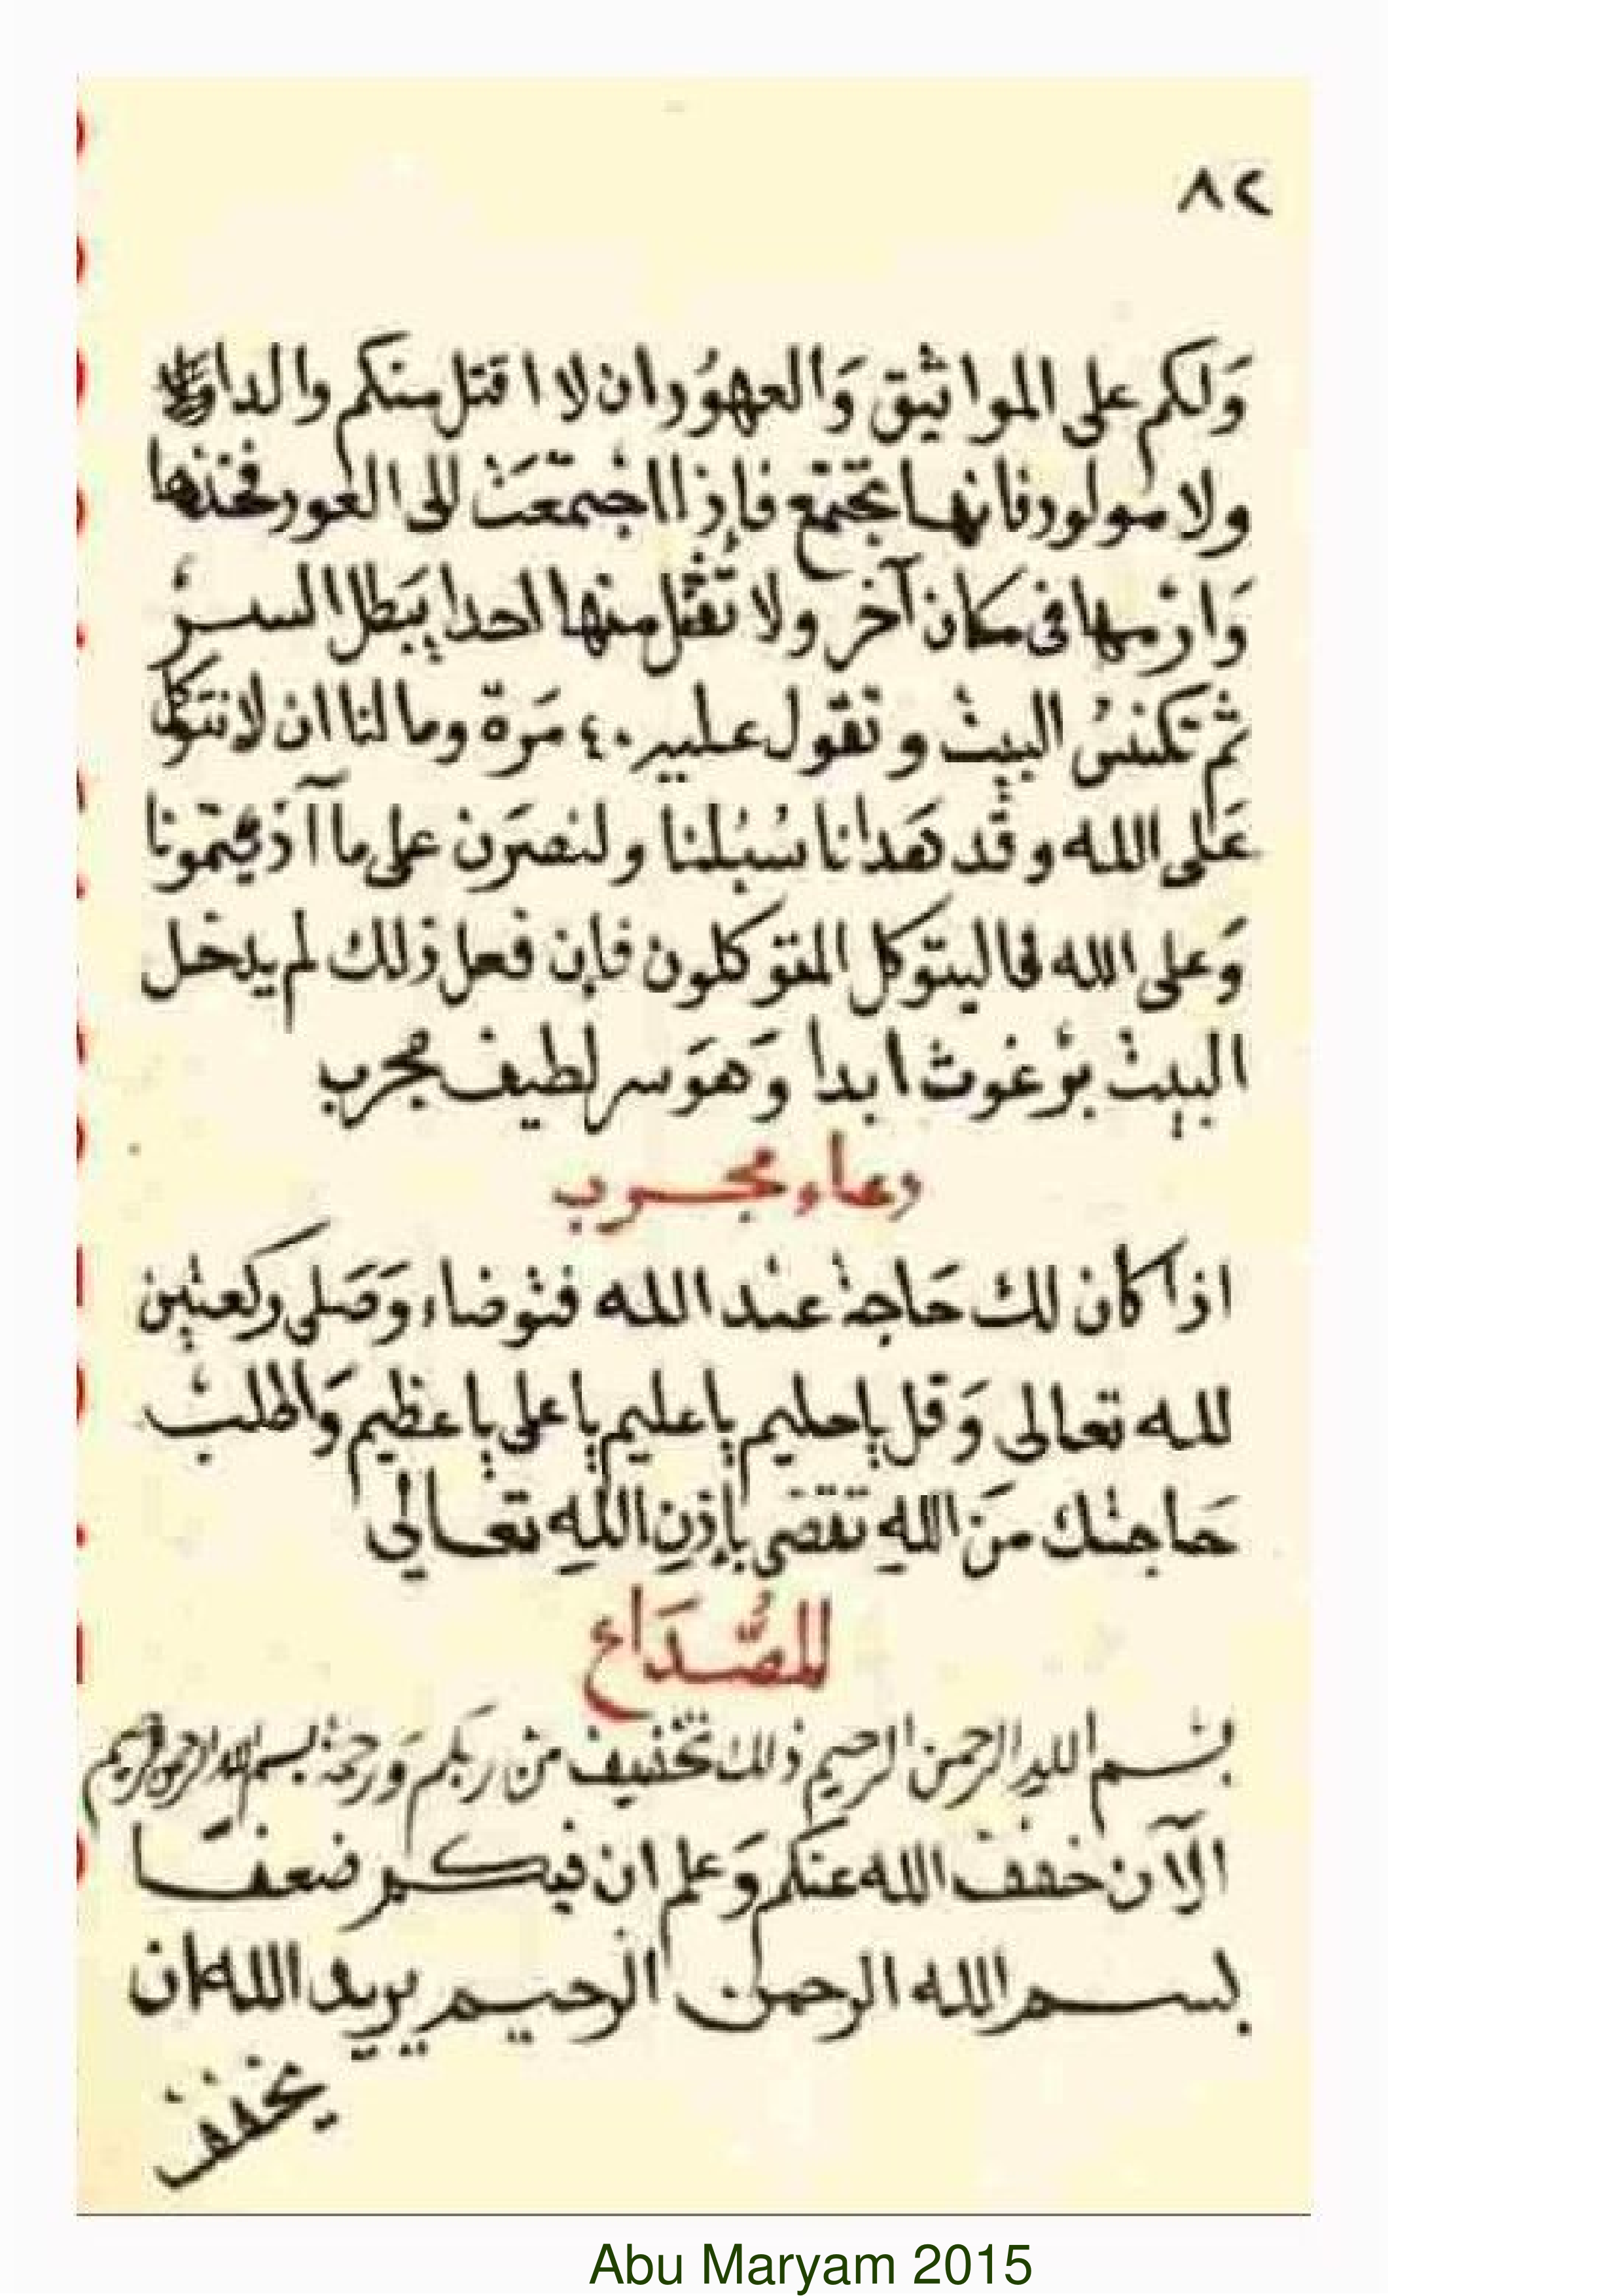 ٨٢
وَلكم على المواثيق وَالعهوُد ان لا اقتل منكم والدا
ولا مولود فانها تجتمع فإذا اجتمعت الى العود فخذها
وَارْمها فى مكان آخر ولا تقتل منها احدا يبَطل السرُ
ثم تكنسُ البيت وتقول عليه ٤٠ مَرة وما لنا ان لا نتوكل
عَلى الله وقد هَدانا سُبُلنا ولنصبَرن على ما آذيتمونا
وَعلى الله فاليتوكل المتوكلون فإن فعل ذلك لم يدخل
البيت برْغوث ابدا وَهوَ سر لطيف مجرب
دعاء مجرب
اذا كان لك حَاجة عند الله فتوضاء وَصَلى ركعتين
لله تعالى وَقل ياحليم ياعليم ياعلى ياعظيم وَاطلبْ
حَاجتك منَ اللهِ تقضى بإذنِ اللهِ تعالى
للصُّدَاع
بسْم الله الرحمن الرحيم ذلك تخفيف من ربَكم وَرحمة بسم الله الرحمن الرحيم
الآن خفف الله عنكم وَعلم ان فيكم ضعفا
بسم الله الرحمن الرحيم يريد الله ان
يخفف
Abu Maryam 2015